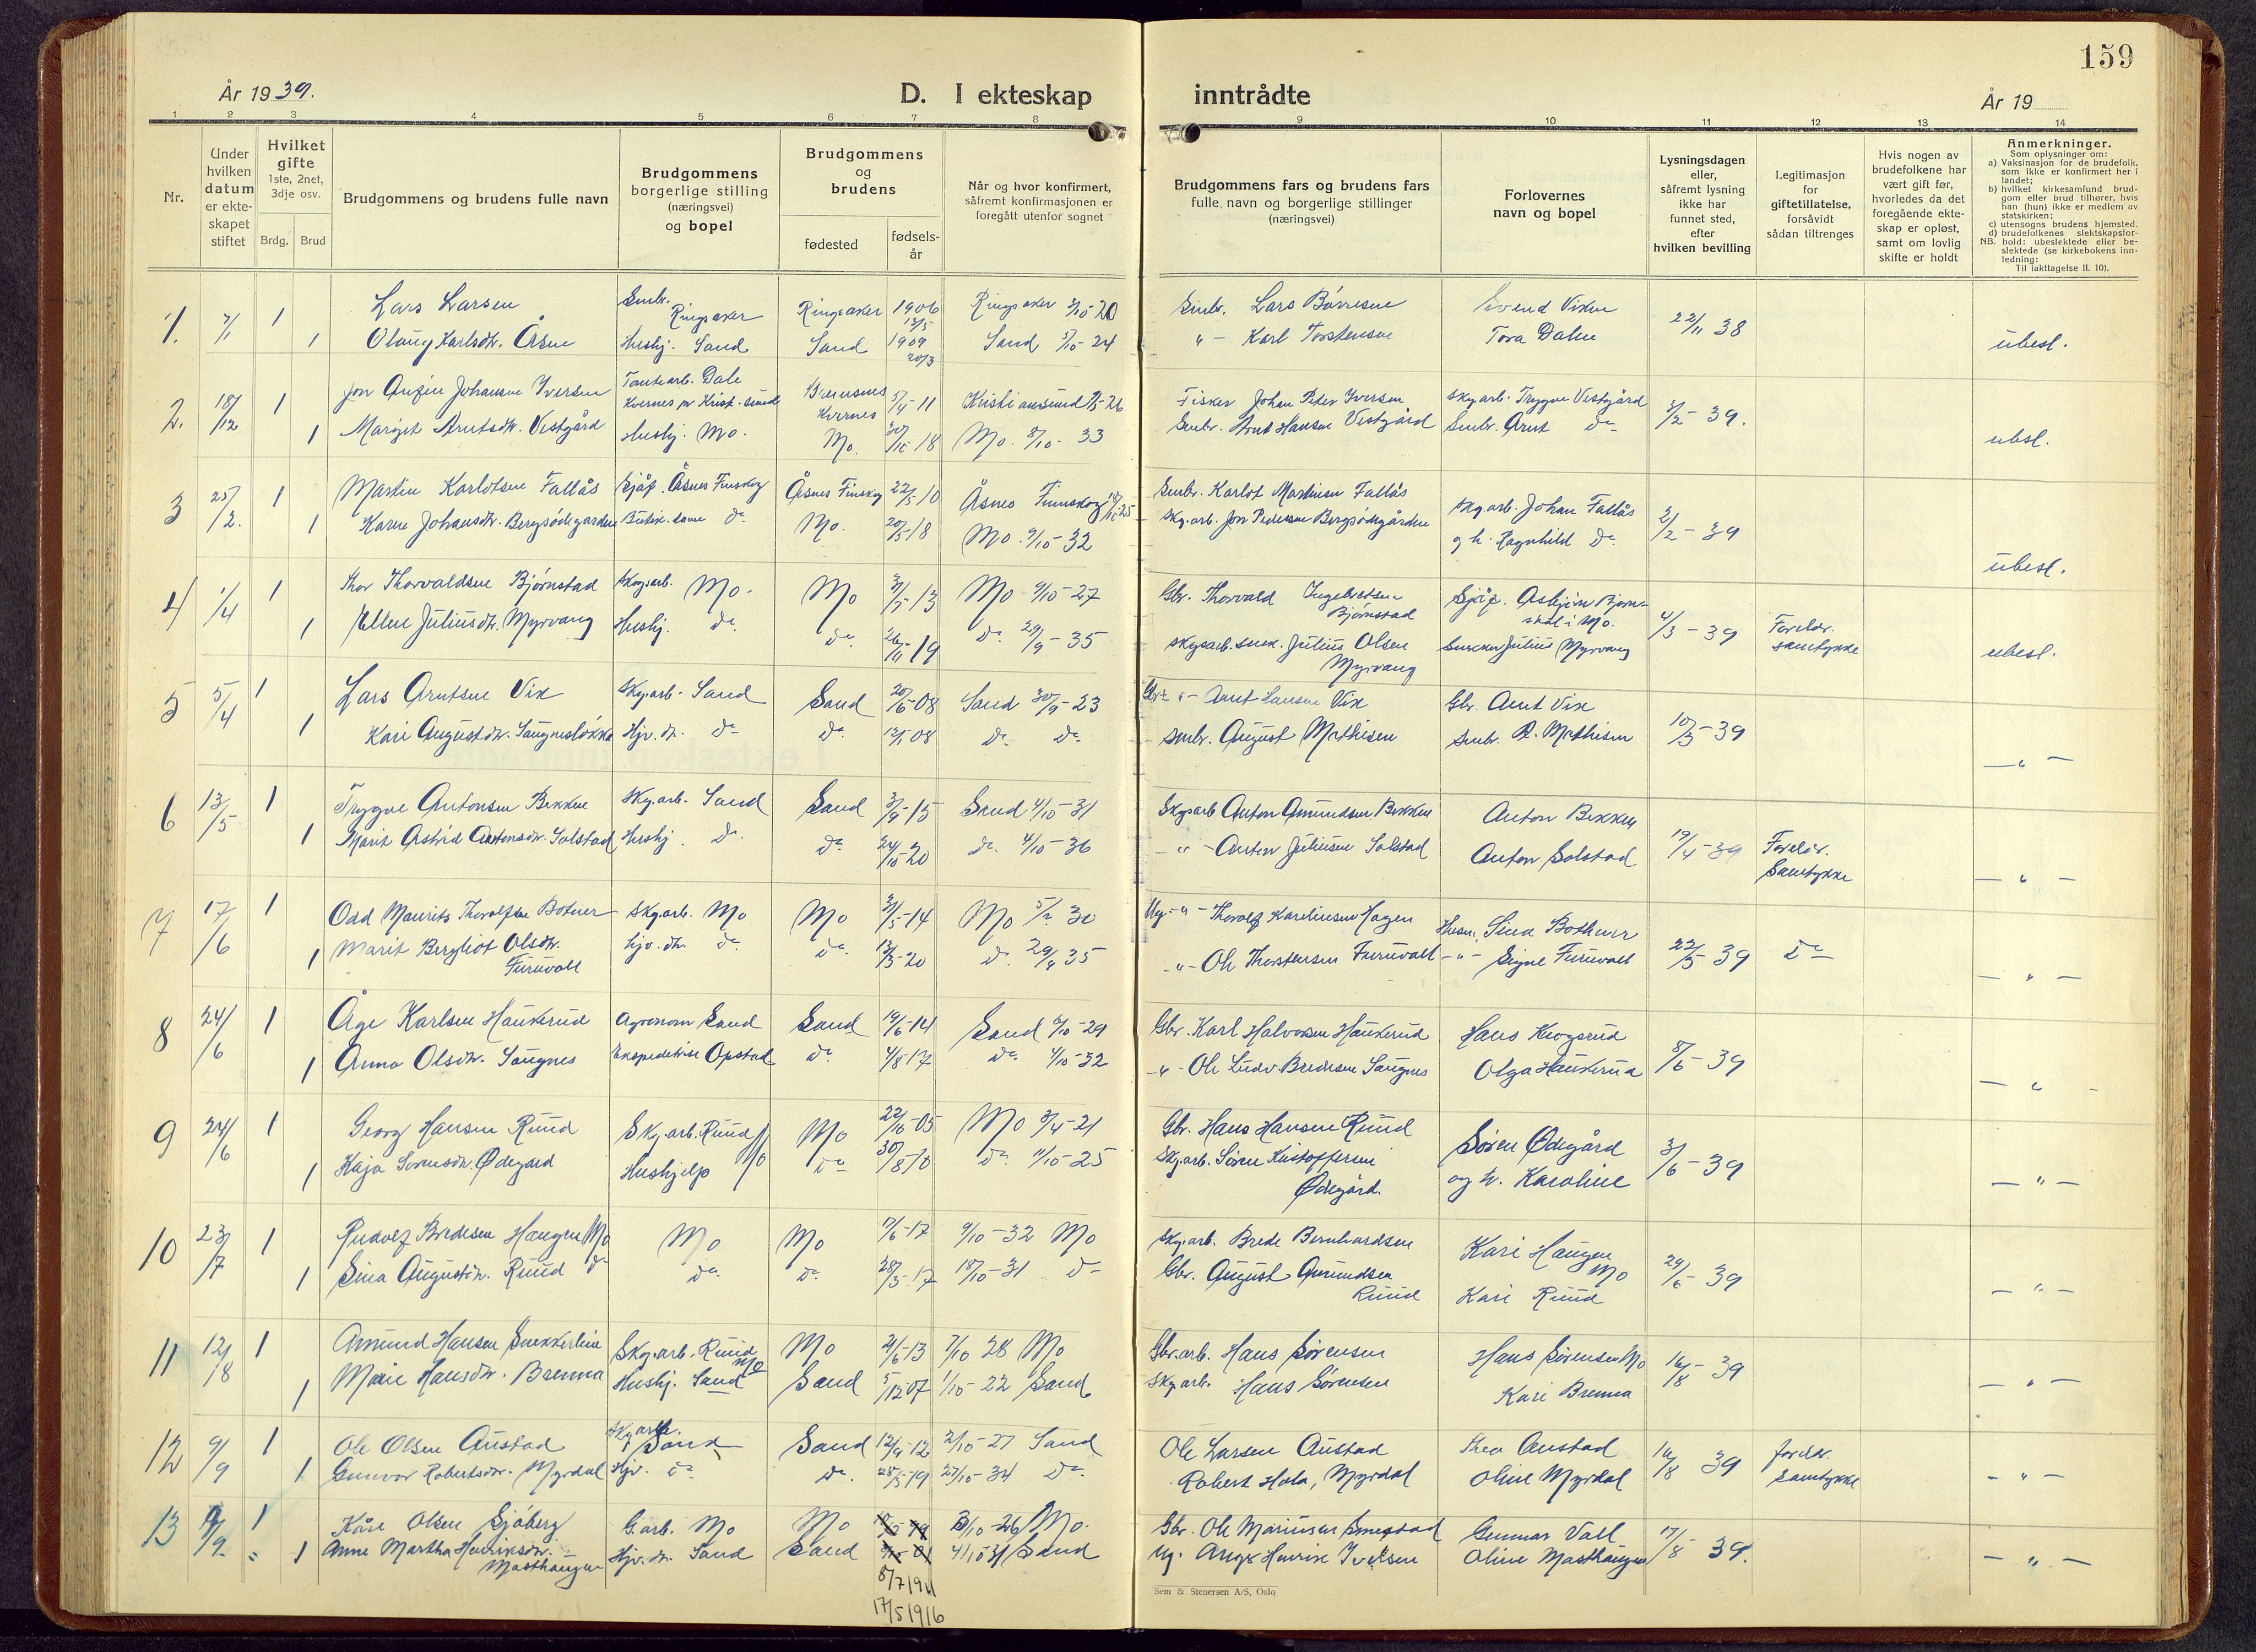 159
År 1939.
D. I ekteskap inntrådte
År 19
1 2 3 4 5 6 7 8 9 10 11 12 13 14
Nr.
Under hvilken datum er ekte-skapet stiftet
Hvilket gifte 1ste, 2net, 3dje osv.
Brdg. Brud
Brudgommens og brudens fulle navn
Brudgommens borgerlige stilling (næringsvei) og bopel
Brudgommens og brudens
fødested
fødsels-år
Når og hvor konfirmert, såfremt konfirmasjonen er foregått utenfor sognet
Brudgommens fars og brudens fars fulle navn og borgerlige stillinger (næringsvei)
Forlovernes navn og bopel
Lysningsdagen eller, såfremt lysning ikke har funnet sted, efter hvilken bevilling
Legitimasjon for giftetillatelse, forsåvidt sådan tiltrenges
Hvis nogen av brudefolkene har vært gift før, hvorledes da det foregående ekte-skap er opløst, samt om lovlig skifte er holdt
Anmerkninger.
Som oplysninger om:
a) Vaksinasjon for de brudefolk, som ikke er konfirmert her i landet;
b) hvilket kirkesamfund brud-gom eller brud tilhører, hvis han (hun) ikke er medlem av statskirken;
c) utensogns brudens hjemsted.
d) brudefolkenes slektskapsfor-
NB. hold: ubeslektede eller be-slektede (se kirkebokens inn-ledning:
Til iakttagelse II. 10).
1. 7/1 1 Lars Larsen Smbr. Ringsaker Ringsaker 1906 Ringsaker 20 Smbr. Lars Børresen Svend Viken 22/11 38
1 Olaug Karlsdtr. Åsen Hushj. Sand Sand 1909 20/3 Sand 5/10-24 " - Karl Torstensen Tora Dalen ubesl.
2. 18/12 1 Jon Anfin Johansen Iversen Dale Kvernes pr Krist.sund Kvernes 5/4-11 Kristiansund 26 Fisker Johan Peter Iversen Skg.arb. Trygve Vestgård 3/2-39.
1 Margit Arntsdtr. Vestgård Hushj. Mo. Mo. 18 Mo. 8/10-33 Smbr. Arnt Hansen Vestgård Smbr. Arnt do ubsl.
3 25/2. 1 Martin Karlotsen Fallås Sjåf. Åsnes Finskog Åsnes Finskog 22/5-10 Åsnes Finnskog 25 Smbr. Karlot Martinsen Fallås Skg.arb. Johan Fallås 2/2-39
1 Karen Johansdtr. Bergsødegarden Butik.dame do Mo. 20/5-18 Mo. 9/10-32 Skg.arb. Jon Pedersen Bergsødegården og h. Ragnhild do ubesl.
4 1/4 1 Thor Thorvaldsen Bjørnstad Skogsarb. Mo. Mo 13 Mo 9/10-27 Gbr. Thorvald Ingebretsen Bjørnstad Sjåf. Asbjørn i Mo. 4/3-39 Foreldr. samtykke
1 Ellen Juliusdtr. Myrvang Hushj. do. do 19 do. 29/9-35 Skogsarb. snek. Julius Olsen Myrvang Snekker Julius Myrvang ubesl.
5 5/4 1 Lars Arntsen Vik Skg.arb. Sand Sand 20/6-08 Sand 30/9-23 Gbr. Arnt Larsen Vik Gbr. Arnt Vik 10/3-39
1 Kari Augustdtr. Saugnesløkka Hjv. dtr. do do 12/1-08 do do Smbr. August Mathisen Smbr. A. Mathisen — " —
6 13/5 1 Trygve Antonsen Bekken Skg.arb. Sand Sand 3/9-15 Sand 4/10-31 Skogsarb Anton Amundsen Bekken Anton Bekken 19/4-39 Foreldr. Samtykke
1 Marit Astrid Antonsdtr. Solstad Hushj. do do 24/10-20 do 4/10-36 - " - Anton Juliusen Solstad Anton Solstad — " —
7 17/6 1 Odd Maurits Thorolfsen Botner Skg.arb. Mo Mo 14 Mo 30 Ug. - " - Thorolf Kareliusen Hagen Husm. Sina Bothner 22/5 39 do
1 Marit Bergliot Olsdtr. Furuvoll hjv. dtr. do do 13/3-20 do 35 - " - Ole Thorstensen Furuvoll - " - Signe Furuvoll — " —
8 24/6 1 Åge Karlsen Haukerud Agronom Sand Sand 19/6-14 Sand 6/10-29 Gbr. Karl Halvorsen Haukerud Hans Krogsrud 8/6-39
1 Anna Olsdtr. Saugnes Ekspeditrise Opstad do 4/8-17 do 4/10-32 - " - Ole Ludv. Bredesen Saugnes Olga Haukerud — " —
9 24/6 1 Georg Hansen Ruud Skg.arb. Ruud Mo Mo 22/6-05 Mo 3/4-21 Gbr. Hans Hansen Ruud Søren Ødegård 3/6-39
1 Kaja Sørensdtr. Ødegård Hushjelp Mo do 30/8-10 do 4/10-25 Skg.arb. Søren Kristoffersen Ødegård. og h. Karoline — " —
10 23/7 1 Rudolf Bredesen Haugen Mo Mo Mo 17/6-17 9/10-32 Mo Skg.arb. Brede Bernhardsen Kari Haugen Mo 29/6 39
1 Sina Augustdtr. Ruud do do do 28/3-17 18/10-31 do Gbr. August Amundsen Ruud Kari Ruud — " —
11 12/8 1 Amund Hansen Snekkerlien Skg.arb. Ruud Mo Mo 21/6-13 7/10 28 Mo Gbr.arb. Hans Sørensen Hans Sørensen Mo 16/8-39
1 Marie Hansdtr. Brenna Hushj. Sand Sand 5/12 07 1/10-22 Sand Skg.arb. Hans Sørensen Kari Brenna — " —
12 9/9 1 Ole Olsen Austad Skg.arb. Sand Sand 12/9-12 2/10-27 Sand Ole Larsen Austad Thea Austad 16/8 39 foreldr. samtykke
1 Gunvor Robertsdtr. Myrdal Hjv. do do 28/5-19 27/10-34 do Robert Hola, Myrdal Oline Myrdal — " —
13 9/9 1 Kåre Olsen Sjøberg G.arb. Mo Mo 3/10-26 Mo. Gbr. Ole Mariusen Smestad Gunnar Vall 17/8 39.
" 1 Anne Martha Henriksdtr. Masthaugen Hjv. dtr. Sand Sand 4/10-31 Sand Ug. Henrik Iversen Oline Masthaugen — " —
8/7 1911
17/5 1916
Sem & Stenersen A/S, Oslo